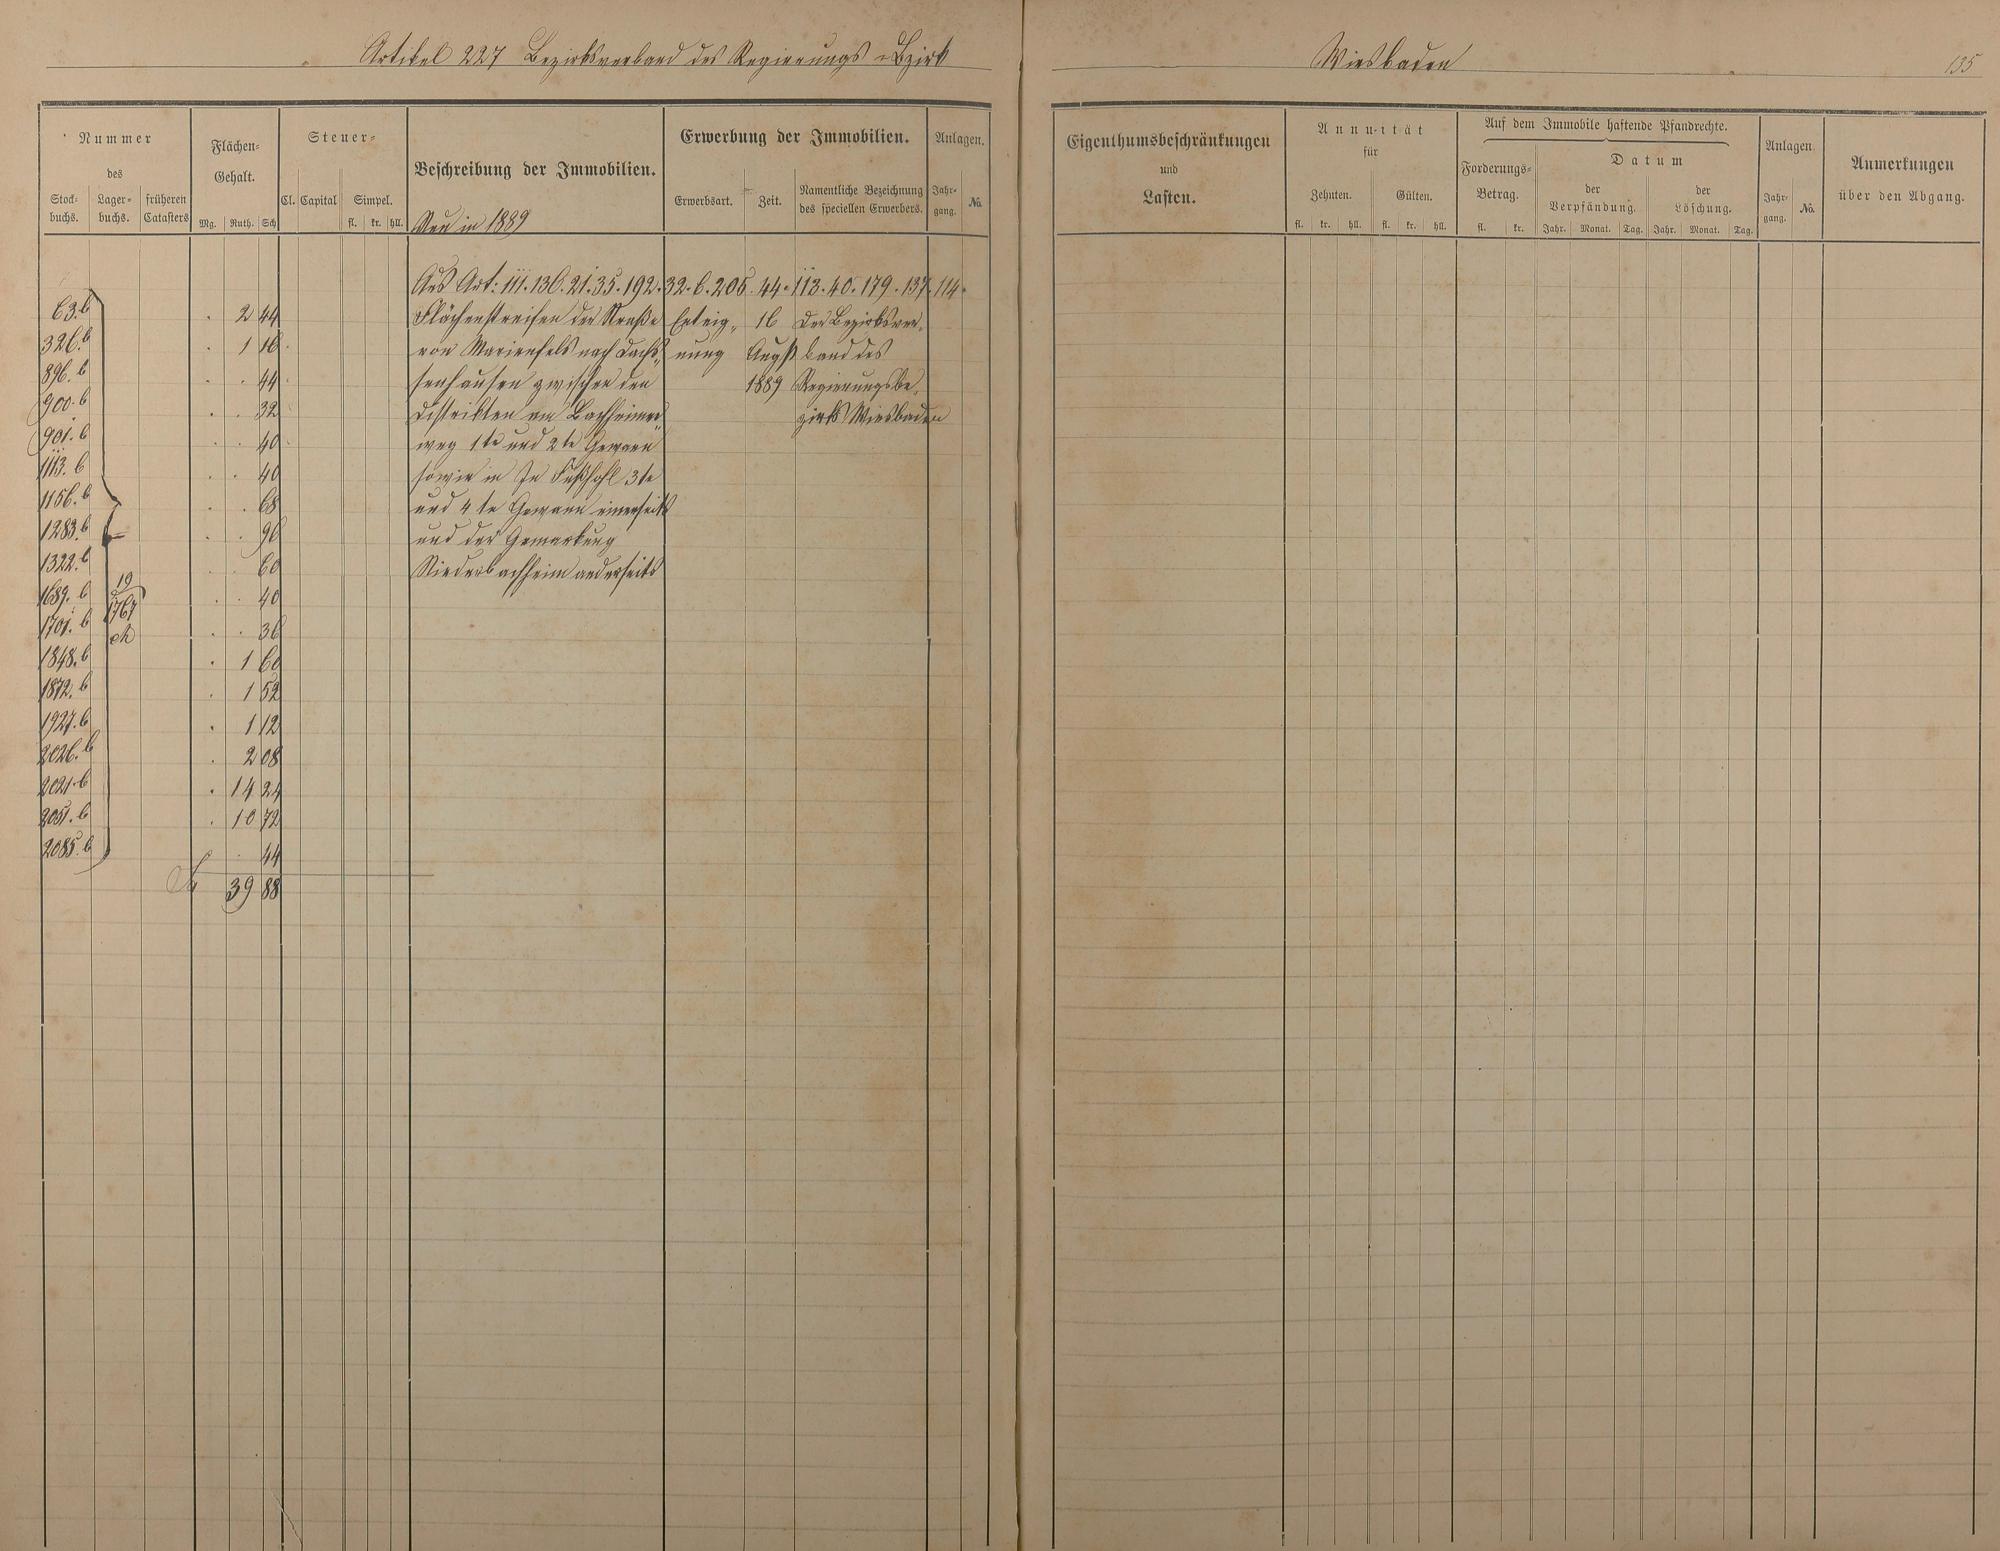 Artikel 227 Bezirksverband des Regierungs-Bezirk Wiesbaden
135
Nummer des
Stock-buchs. Lager-buchs. früheren Catasters
Flächen-Gehalt.
Mg. Ruth. Sch
Steuer-
Cl. Capital Simpel.
fl. kr. hll.
Beschreibung der Immobilien.
Neu in 1889
Erwerbung der Immobilien.
Erwerbsart. Zeit. Namentliche Bezeichnung des speciellen Erwerbers.
Anlagen.
Jahr-gang. No.
Eigenthumsbeschränkungen
und
Lasten.
Annuität
für
Zehnten. Gülten.
fl. kr. hll. fl. kr. hll.
Auf dem Immobile haftende Pfandrechte.
Forderungs-Betrag.
fl. kr.
Datum
der Verpfändung. der Löschung.
Jahr. Monat. Tag. Jahr. Monat. Tag.
Anlagen
Jahr-gang. No.
Anmerkungen
über den Abgang.
Aus Art: 111. 136. 21. 35. 192. 32. 6. 205. 44. 113. 40. 179. 137. 114.
63.b . 2 44 Flächenstreifen der Straße Enteig- 16 Der Bezirksver-
326.b . 1 16 von Marienfels nach Dachs- nung Augst band des
896.b . . 44 senhausen zwischen den 1889 Regierungsbe-
900.b . . 32 Distrikten am Bachheimer- zirks Wiesbaden
901.b . . 40 weg 1te und 2te Gewann
1113.b . . 40 sowie in Fußhohl 3te
1156.b . . 68 und 4te Gewann einerseits
1283.b . . 96 und der Gemarkung
1322.b . . 60 Niederbachheim anderseits
1689.b . . 40
19
1767
1701.b . . 36
1848.b . 1 60
1872.b . 1 52
1927.b . 1 12
2026.b . 2 08
2021.b . 14 24
2051.b . 10 72
2085.b . . 44
39 88